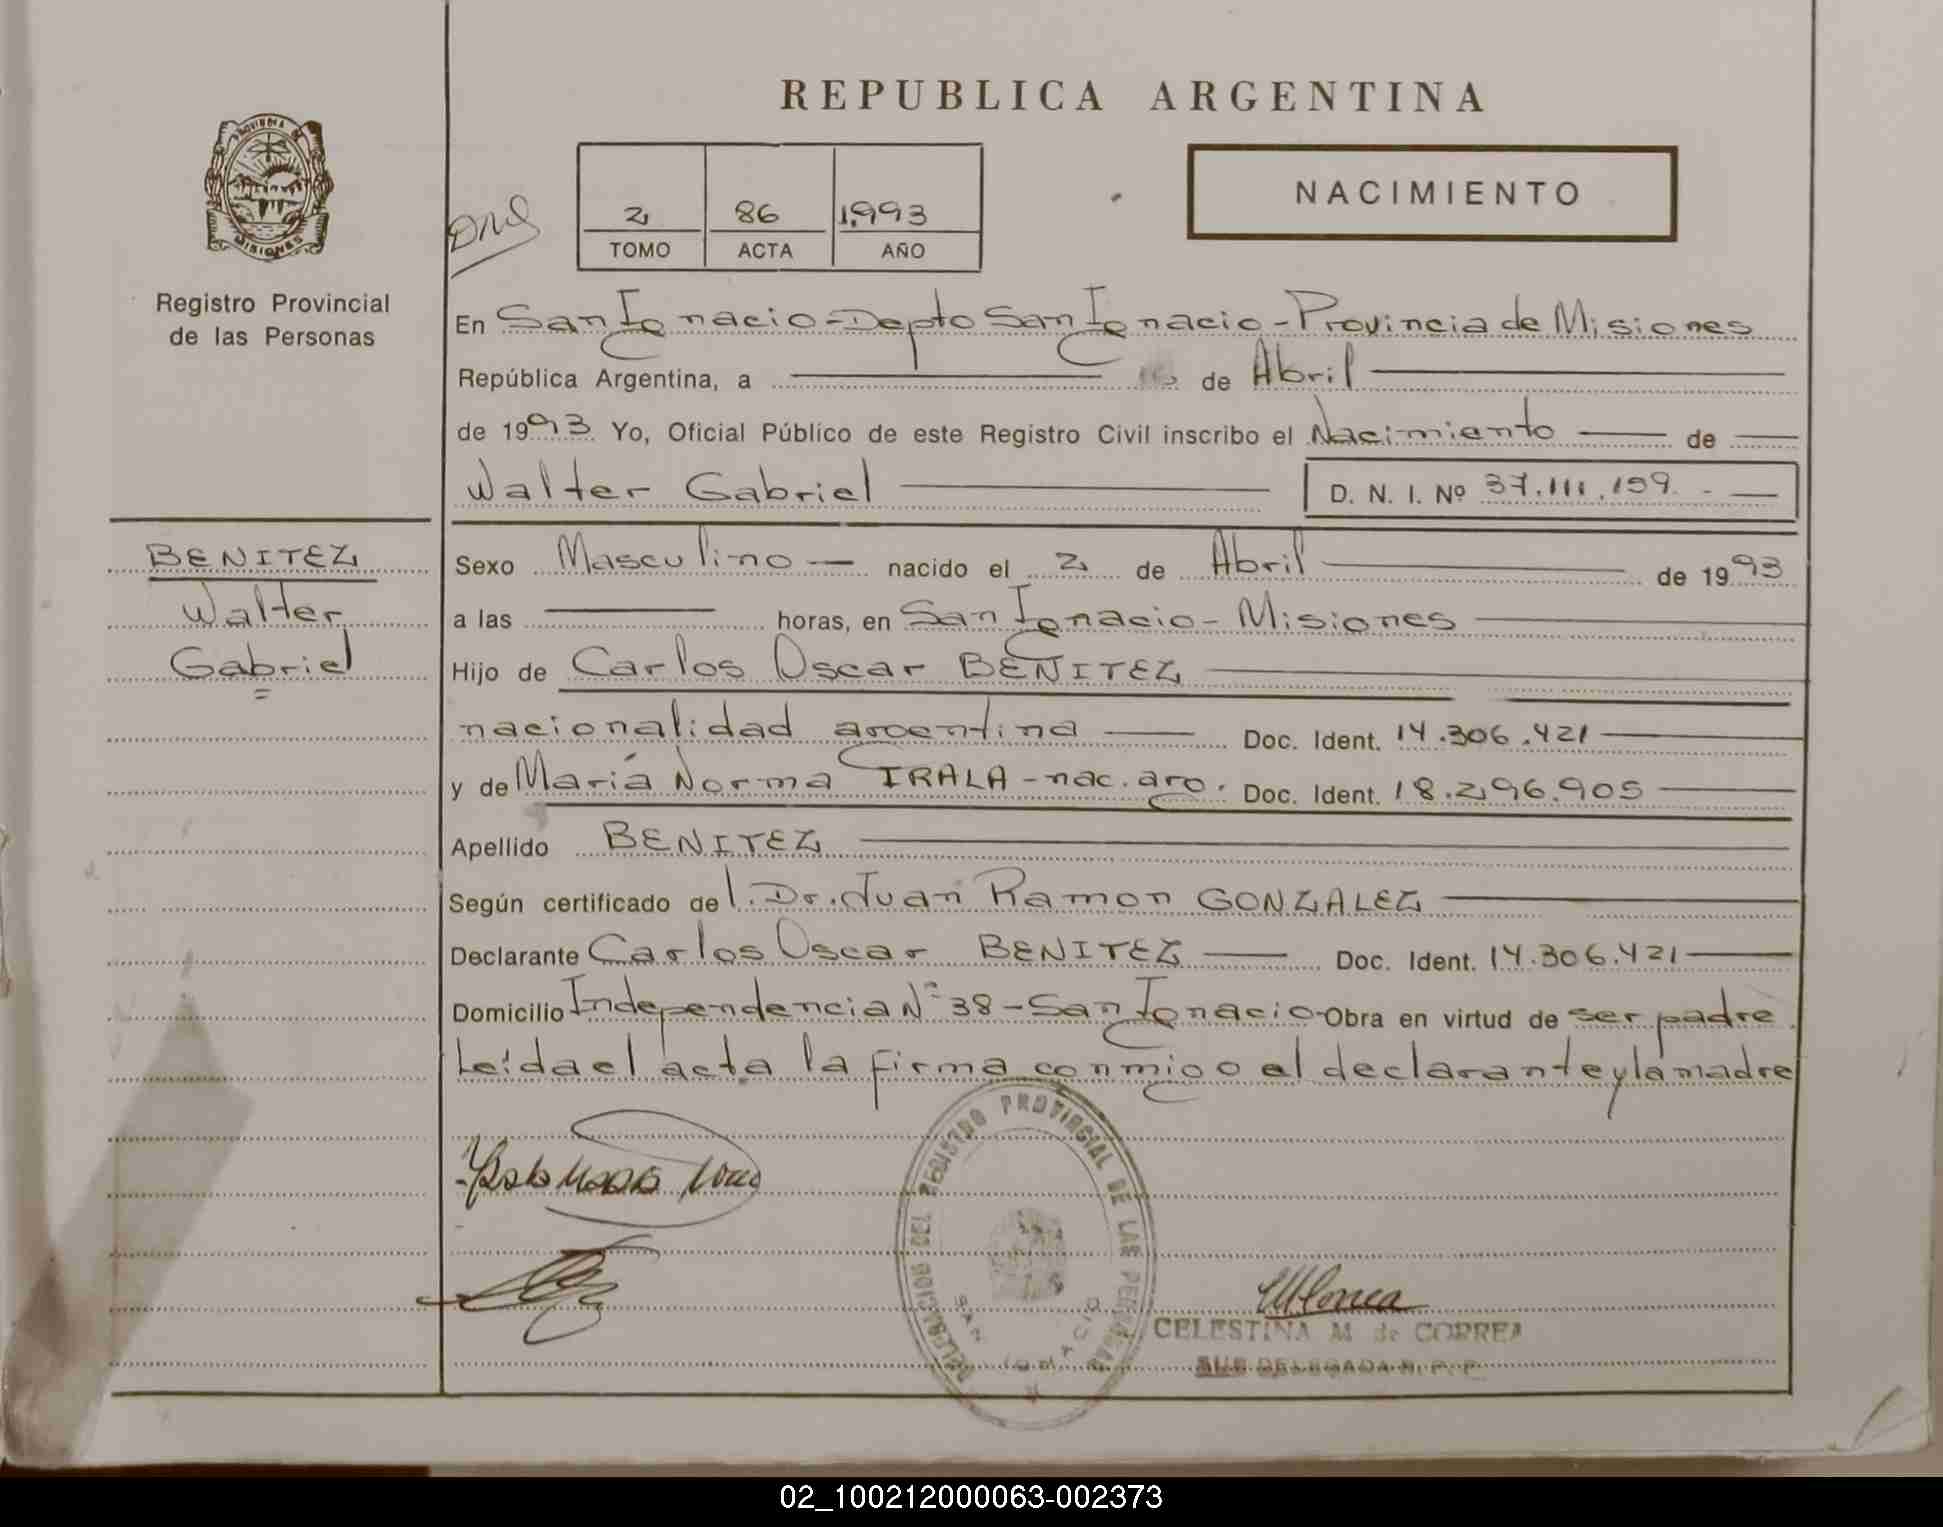 REPUBLICA ARGENTINA
PROVINCIA DE
MISIONES
Registro Provincial
de las Personas
2 86 1.993
TOMO ACTA AÑO
NACIMIENTO
En San Ignacio - Depto San Ignacio - Provincia de Misiones
República Argentina, a 16 de Abril
de 1993 Yo, Oficial Público de este Registro Civil inscribo el Nacimiento de
Walter Gabriel D. N. I. Nº 37.111.159.-
BENITEZ
Walter
Gabriel
Sexo Masculino nacido el 2 de Abril de 1993
a las horas, en San Ignacio - Misiones
Hijo de Carlos Oscar BENITEZ
nacionalidad argentina Doc. Ident. 14.306.421
y de María Norma IRALA - nac. arg. Doc. Ident. 18.296.905
Apellido BENITEZ
Según certificado del Dr. Juan Ramon GONZALEZ
Declarante Carlos Oscar BENITEZ Doc. Ident. 14.306.421
Domicilio Independencia Nº 38 - San Ignacio - Obra en virtud de ser padre.
Leida el acta la firma conmigo el declarante y la madre
DELEGACION DEL REGISTRO PROVINCIAL DE LAS PERSONAS
SAN IGNACIO
CELESTINA M de CORREA
SUB DELEGADA R. P. P.
02_100212000063-002373